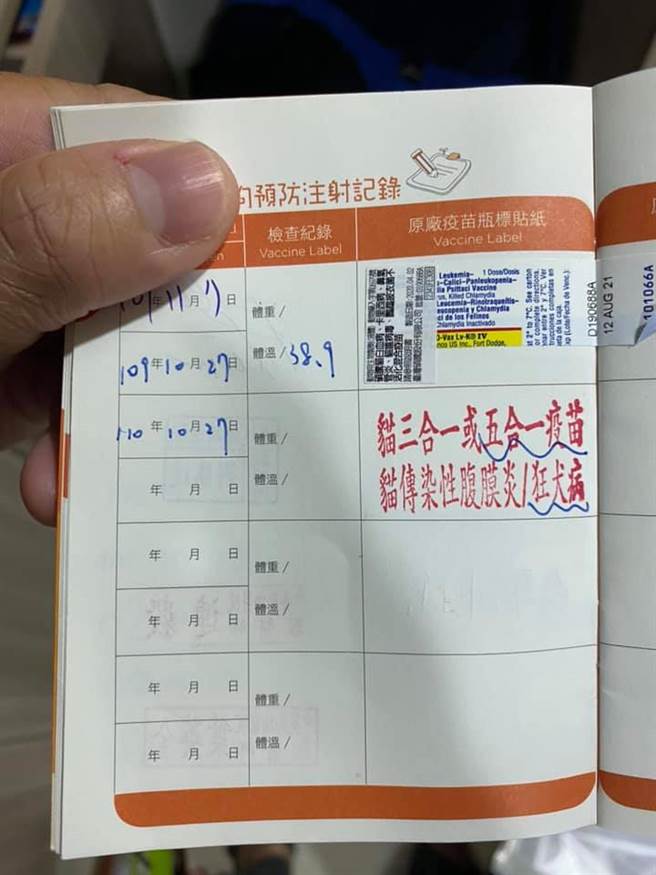 預防注射記錄
檢查紀錄
Vaccine Label
原廠疫苗瓶標貼紙
Vaccine Label
年11月 日
體重 /
109年10月27日
體溫 / 38.9
Leukemia-
1 Dose/Dosis
-Calici-Panleukopenia-
Psittaci Vaccine
Killed Chlamydia
Leucemia-Rinotraqueitis-
eucopenia y Chlamydia
ci de los Felinos
Chlamydia Inactivado
-Vax Lv-K® IV
US Inc., Fort Dodge,
D190688A
12 AUG 21
101066A
110年10月27日
體重 /
年 月 日
體溫 /
貓三合一或五合一疫苗
貓傳染性腹膜炎/狂犬病
年 月 日
體重 /
年 月 日
體溫 /
年 月 日
體重 /
年 月 日
體溫 /